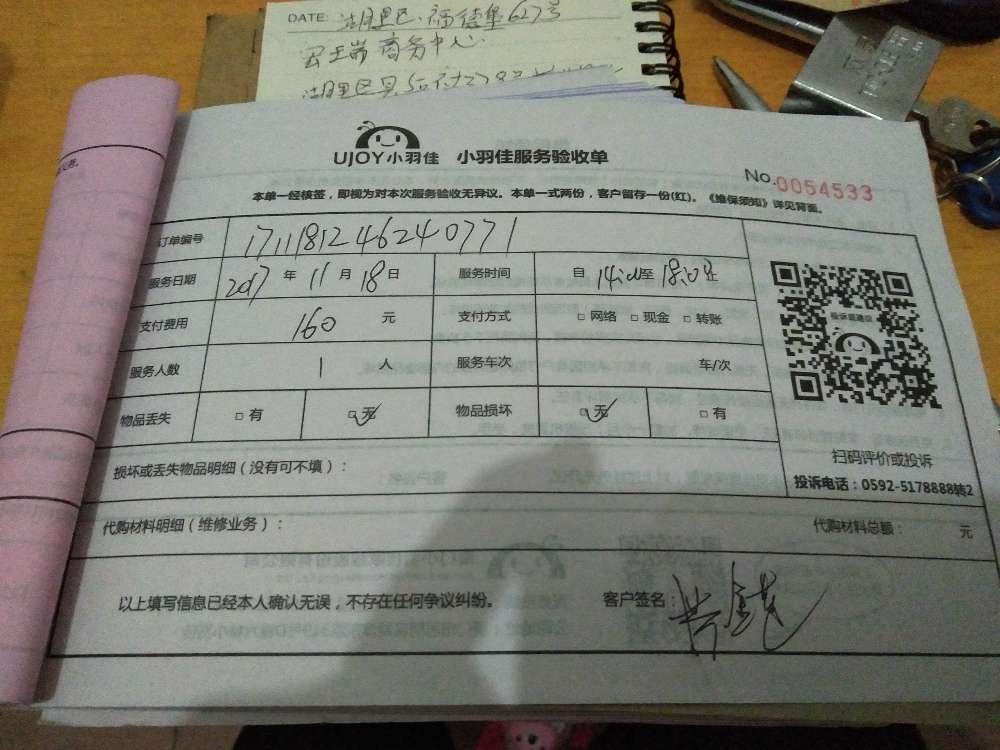 DATE: 湖里区·福德堡627号
商务中心
湖里区
UJOY小羽佳 小羽佳服务验收单
No.0054533
本单一经核签，即视为对本次服务验收无异议。本单一式两份，客户留存一份(红)。《维保须知》详见背面。
订单编号 1711181246240771
服务日期 2017 年 11 月 18 日 服务时间 自 14:00至 18:00止
支付费用 160 元 支付方式 □ 网络 □ 现金 □ 转账
服务人数 1 人 服务车次 车/次
物品丢失 □ 有 □ 无 ✓ 物品损坏 □ 无 ✓ □ 有
投诉或建议
扫码评价或投诉
投诉电话：0592-5178888转2
损坏或丢失物品明细（没有可不填）：
代购材料明细（维修业务）： 代购材料总额： 元
以上填写信息已经本人确认无误，不存在任何争议纠纷。 客户签名：